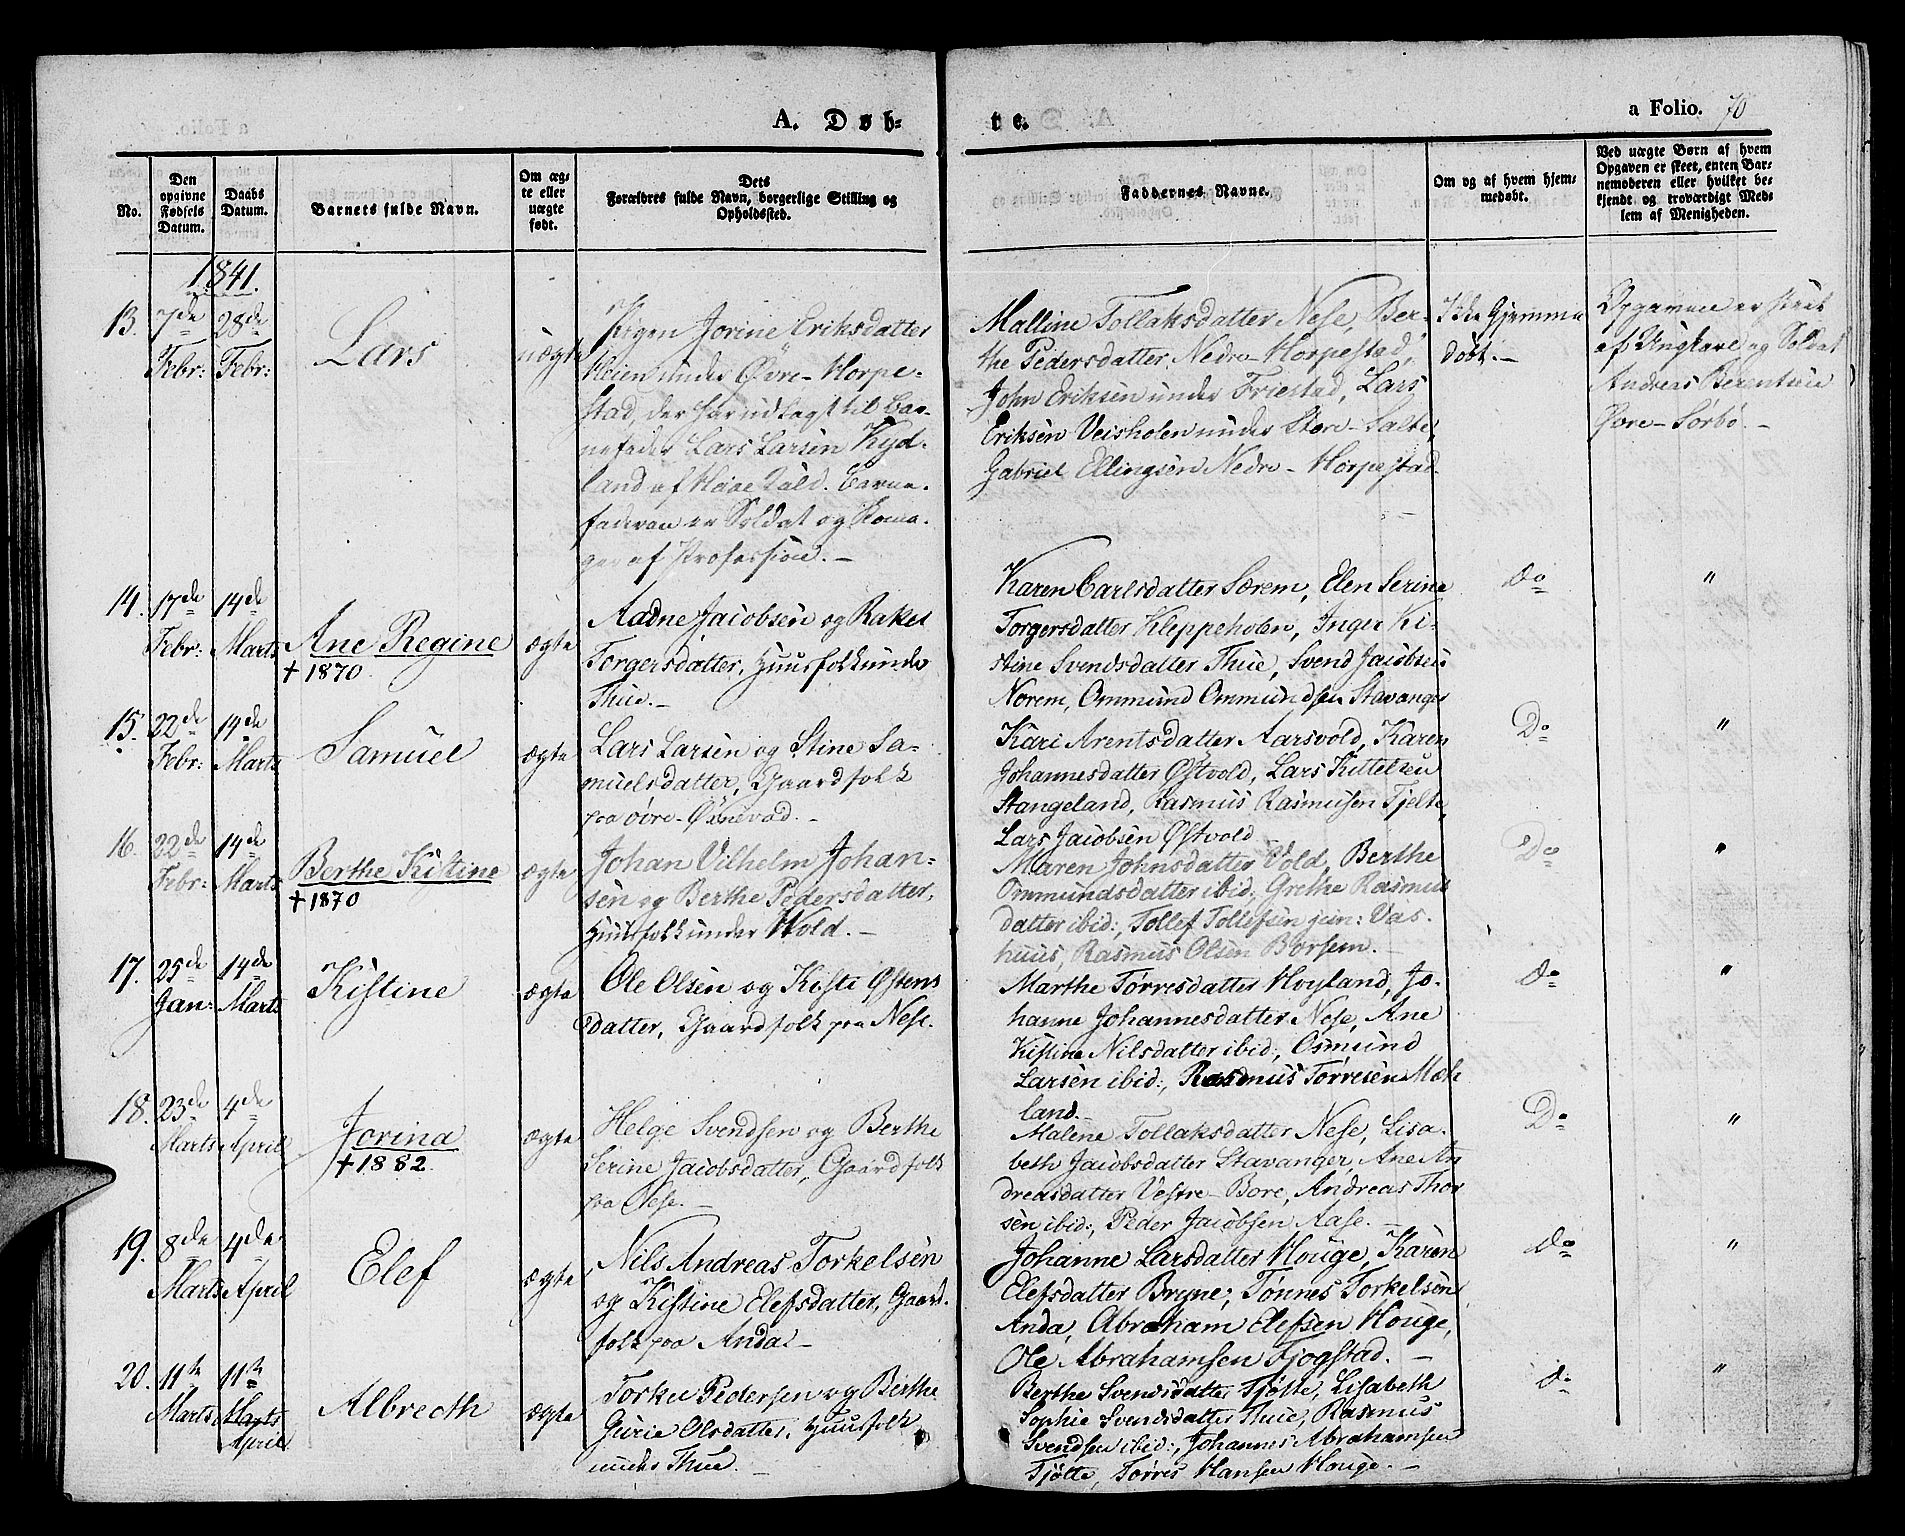 A. Døb-
te.
a Folio. 70
No.
Den opgivne Fødsels Datum.
Daabs Datum.
Barnets fulde Navn.
Om ægte eller uægte født.
Dets Forældres fulde Navn, borgerlige Stilling og Opholdssted.
Faddernes Navne.
Om og af hvem hjemmedøbt.
Ved uægte Børn af hvem Opgaven er skeet, enten Barnemoderen eller hvilket bekjendt og troværdigt Medlem af Menigheden.
1841.
13. 7de Febr: 28de Febr:
Lars
uægte
Pigen Jorine Eriksdatter
Heien under Øvre-Horpe-
stad, der har udlagt til Bar-
nefader Lars Larsen Kyd-
land af Haae Sald. Barne-
faderen er Soldat og
af Profession. –
Malline Tollaksdatter Nese, Ber-
the Pedersdatter Nedre-Horpestad,
John Eriksen under Friestad, Lars
Eriksen Veisholen under Store-Salte,
Gabriel Ellingsen Nedre-Horpestad
Ikke Hjemme
døbt. –
Opgaven er skeet
af Ungkarl og Soldat
Andreas Berentsen
Øvre-Sørbø. –
14. 17de Febr: 14de Marts
Ane Regine
+ 1870.
ægte
Aadne Jacobsen og Rakel
Torgersdatter, Huusfolk under
Thue. –
Karen Carlsdatter Sørem, Elen Serine
Torgersdatter Kleppeholen, Inger Ki-
stine Svendsdatter Thue, Svend Jacobsen
Norem, Ommund Ommundsen Stavanger
do
"
15. 22de Febr: 14de Marts
Samuel
ægte
Lars Larsen og Stine Sa-
muelsdatter, Gaardfolk
paa øvre-Øxnevad. –
Kari Arentsdatter Aarsvold, Karen
Johannesdatter Østvold, Lars Kittelsen
Stangeland, Rasmus Rasmusen Tjelte,
Lars Jacobsen Østvold
Do
"
16. 22de Febr: 14de Marts
Berthe Kistine
+ 1870
ægte
Johan Vilhelm Johan-
sen og Berthe Pedersdatter,
Huusfolk under Wold. –
Maren Johnsdatter Vold, Berthe
Ommundsdatter ibid:, Grethe Rasmus
datter ibid:, Tollef Tollefsen jun: Vas-
huus, Rasmus Olsen Borsem. –
Do
"
17. 25de Jan: 14de Marts
Kistine
ægte
Ole Olsen og Kisti Østens
datter, Gaardfolk paa Nese.
Marthe Tørresdatter Hoyland, Jo-
hanne Johannesdatter Nese, Ane
Kistine Nilsdatter ibid:, Osmund
Larsen ibid:, Rasmus Tørresen Mæh
land. –
do
"
18. 23de Marts 4de April
Jorina
+ 1882.
ægte
Helge Svendsen og Berthe
Serine Jacobsdatter, Gaardfolk
paa Nese. –
Malene Tollaksdatter Nese, Lisa-
beth Jacobsdatter Stavanger, Ane An
dreasdatter Vestre-Bore, Andreas Thor
sen ibid:, Peder Jacobsen Aase. –
Do
"
19. 8de Marts 4de April
Elef
ægte
Nils Andreas Torkelsen
og Kistine Elefsdatter, Gaard-
folk paa Anda –
Johanne Larsdatter Houge, Karen
Elefsdatter Bryne, Tønnes Torkelsen
Anda, Abraham Elefsen Houge,
Ole Abrahamsen Tjogstad. –
do
"
20. 11te Marts 11te Marts April
Albrecth
ægte
Torkel Pedersen og Berthe
Gurie Olsdatter, Huusfolk
under Thue. –
Berthe Svendsdatter Tjøtte, Lisabeth
Sophie Svendsdatter Thue, Rasmus
Svendsen ibid:, Johannes Abrahamsen
Tjøtte, Tørres Hansen Houge. –
do
"